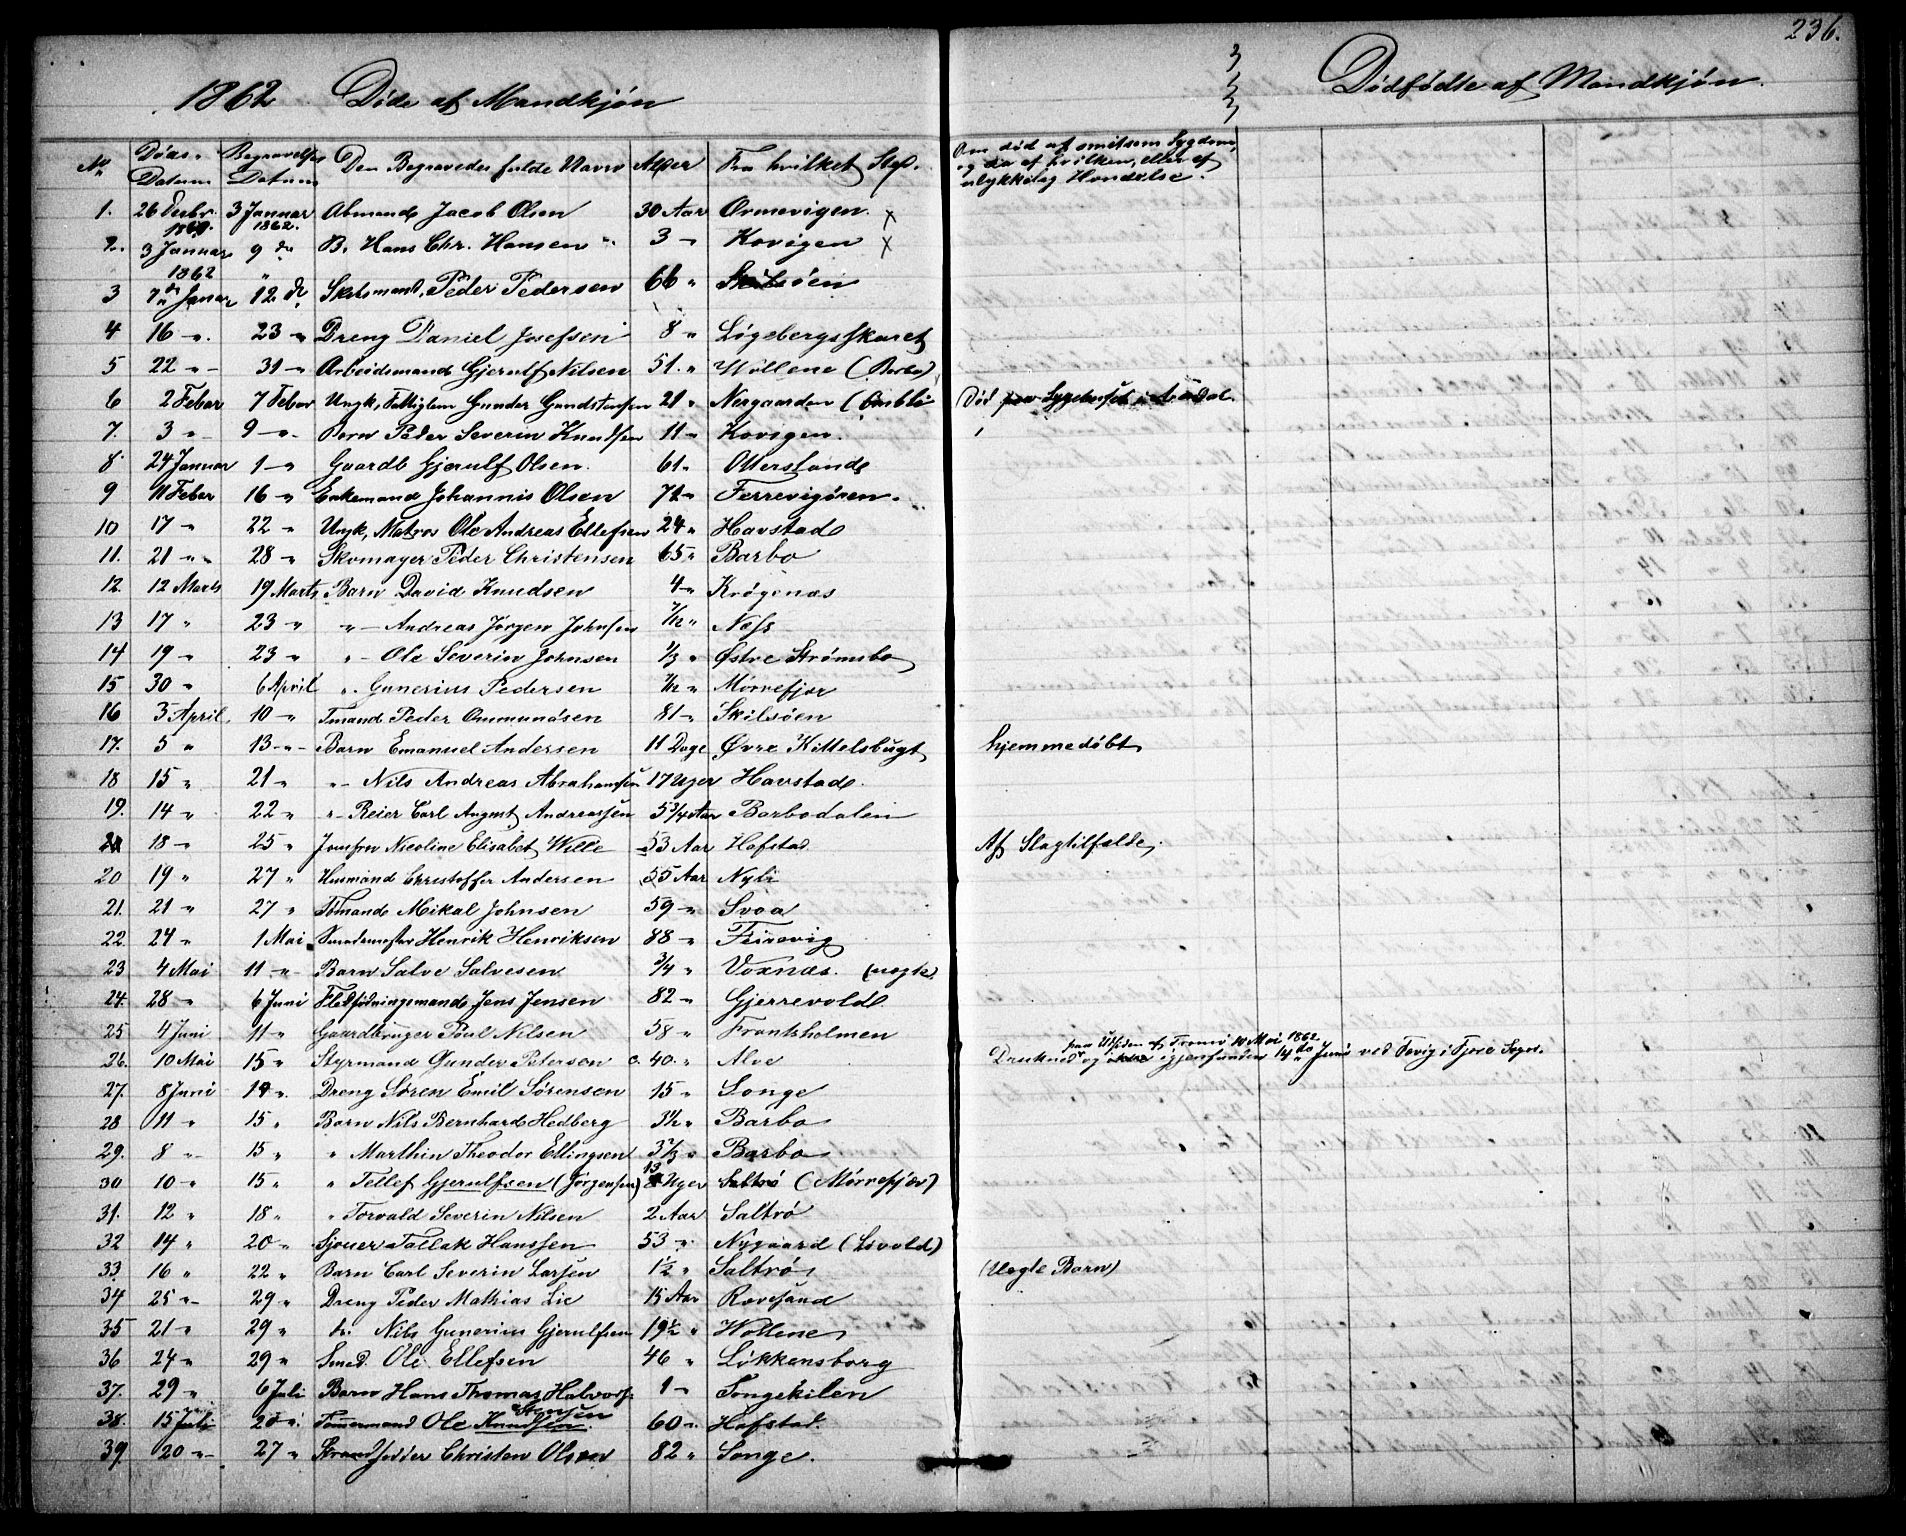 236.
1862 Døde af Mandkjøn
Dødfødte af Mandkjøn.
No Døds- Datum Begravelses Datum Den Begravedes fulde Navn Alder Fra hvilket Sted.
Om død af smitsom Sygdom,
og da af hvilken, eller af
ulykkelig Hændelse.
1. 26 Decbr. 3 Januar Abmand Jacob Olsen 30 Aar Ormevigen. x
1862.
2. 3 Januar 9 do B. Hans Chr. Hansen 3 " Kovigen x
1862
3 7de Januar 12 do Skibsmand, Peder Pedersen 66 " Skilsöen
4 16 " 23 " Dreng Daniel Josefsen 8 " Løgebergsskaret
5 22 " 31 " Arbeidsmand Gjerulf Nilsen 51 " Wollene (Barbo)
6 2 Febar 7 Febar Ungk, Fattiglem Gunder Gundstensen 21 " Nergaarden (Ombli Død paa Sygehuset i Arendal.
7. 3 " 9 " Barn Peder Severin Knudsen 11 " Kovigen.
8 24 Januar 1 " Gaardb Gjerulf Olsen. 61 " Otterstand
9 11 Febar 16 " Enkemand Johannis Olsen 72 " Ferrevigören.
10 17 " 22 " Ungk, Matros Ole Andreas Ellefsen 24 " Havstad
11. 21 " 28 " Skomager Peder Christensen 65 " Barbo
12. 12 Marts 19 Marts Barn David Knudsen 4 " Krögenæs
13 17 " 23 " " Andreas Jørgen Johnsen 7/12 " Næss
14 19 " 23 " " Ole Severin Johnsen 1/3 " Østre Strømsbo
15 30 " 6 April " Gunerius Pedersen 7/12 " Mörrefjær
16 3 April 10 " Tmand Peder Ommundsen 81 " Skilsöen
17. 5 " 13 " Barn Emanuel Andersen 11 Dage Øvre Kittelsbugt hjemmedøbt
18 15 " 21 " " Nils Andreas Abrahamsen 17 Uger Havstad.
19. 14 " 22 " " Reier Carl August Andreassen 5 3/4 Aar Barbodalen
18 " 25 " Jomfru Nicoline Elisabet Wille 53 Aar Hafstad Af Slagtilfælde.
20 19 " 27 " Husmand Christoffer Andersen 55 Aar Nyli
21. 21 " 27 " Tømand Mikal Johnsen 59 " Svoa
22. 24 " 1 Mai Henrik Henriksen 88 " Feirevig
23 4 Mai 11 " Barn Salve Salvesen 3/4 " Voxnæs. (uegte)
24. 28 " 6 Juni Fledføringsmand Jens Jensen 82 " Gjerrevold
25 4 Juni 11 " Gaardbruger Poul Nilsen 58 " Frantsholmen
paa Utsiden af Tromö 10 Mai 1862
26. 10 Mai 15 " Styrmand Gunder Petersen c. 40 " Alve Druknede og igjenfunden 14de Juni ved Fevig i Fjære Sogn.
27. 8 Juni 14 " Dreng Sören Emil Sörensen 15 " Songe
28 11 " 15 " Barn Nils Bernhard Hedberg 3 1/2 " Barbo
29. 8 " 15 " " Marthin Theodor Ellingsen 3 2/3 " Barbo
30 10 " 15 " " Tellef Gjerulfsen (Jørgensen) 13 Uger Saltrö (Mörrefjær)
31. 12 " 18 " " Torvald Severin Nilsen 2 Aar Saltrö
32 14 " 20 " Sjouer Tallak Hanssen 53 " Nygaard (Lövold)
33 16 " 22 " Barn Carl Severin Larsen 1 1/2 " Saltrö (Uegte Barn)
34 25 " 29 " Dreng Peder Mathias Lie 15 Aar Rævesand
35 21 " 29 " do. Nils Gunerius Gjerulfsen 19 1/2 " Wollene
36 24 " 29 " Smed. Ole Ellefsen 46 " Løkkensborg
37. 29 " 6 Juli Barn Hans Thomas Halvors. 1 " Songekilen
38. 15 Juli 20 " Tømmermand Ole Knudsen 60 " Hafstad.
39 20 " 27 " Strandsidder Christen Olsen 82 " Songe.